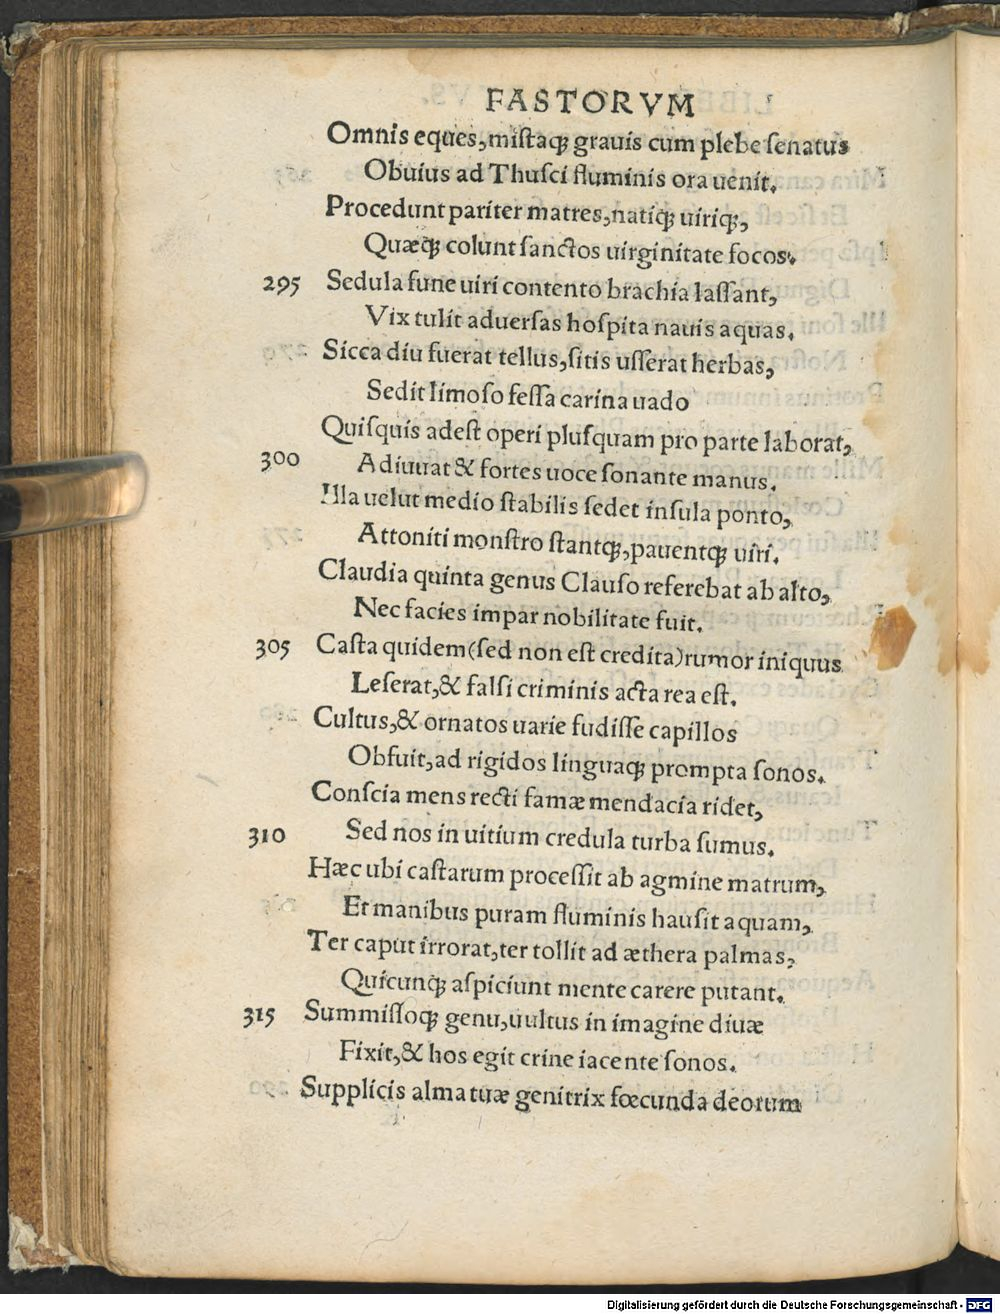 FASTORVM
Omnis eques, mistaqꝫ grauis cum plebe senatus
Obuius ad Thusci fluminis ora uenit.
Procedunt pariter matres, natiqꝫ uiriqꝫ,
Quæqꝫ colunt sanctos uirginitate focos.
295 Sedula fune uiri contento brachia lassant,
Vix tulit aduersas hospita nauis aquas.
Sicca diu fuerat tellus, sitis usserat herbas,
Sedit limoso fessa carina uado
Quisquis adest operi plusquam pro parte laborat,
300 Adiuuat & fortes uoce sonante manus.
Illa uelut medio stabilis sedet insula ponto,
Attoniti monstro stantqꝫ, pauentqꝫ uiri.
Claudia quinta genus Clauso referebat ab alto,
Nec facies impar nobilitate fuit.
305 Casta quidem (sed non est credita) rumor iniquus
Leserat, & falsi criminis acta rea est.
Cultus, & ornatos uarie fudisse capillos
Obfuit, ad rigidos linguaqꝫ prompta sonos.
Conscia mens recti famæ mendacia ridet,
310 Sed nos in uitium credula turba sumus.
Hæc ubi castarum processit ab agmine matrum,
Et manibus puram fluminis hausit aquam,
Ter caput irrorat, ter tollit ad æthera palmas,
Quicunqꝫ aspiciunt mente carere putant.
315 Summissoqꝫ genu, uultus in imagine diuæ
Fixit, & hos egit crine iacente sonos.
Supplicis alma tuæ genitrix fœcunda deorum
Digitalisierung gefördert durch die Deutsche Forschungsgemeinschaft - DFG